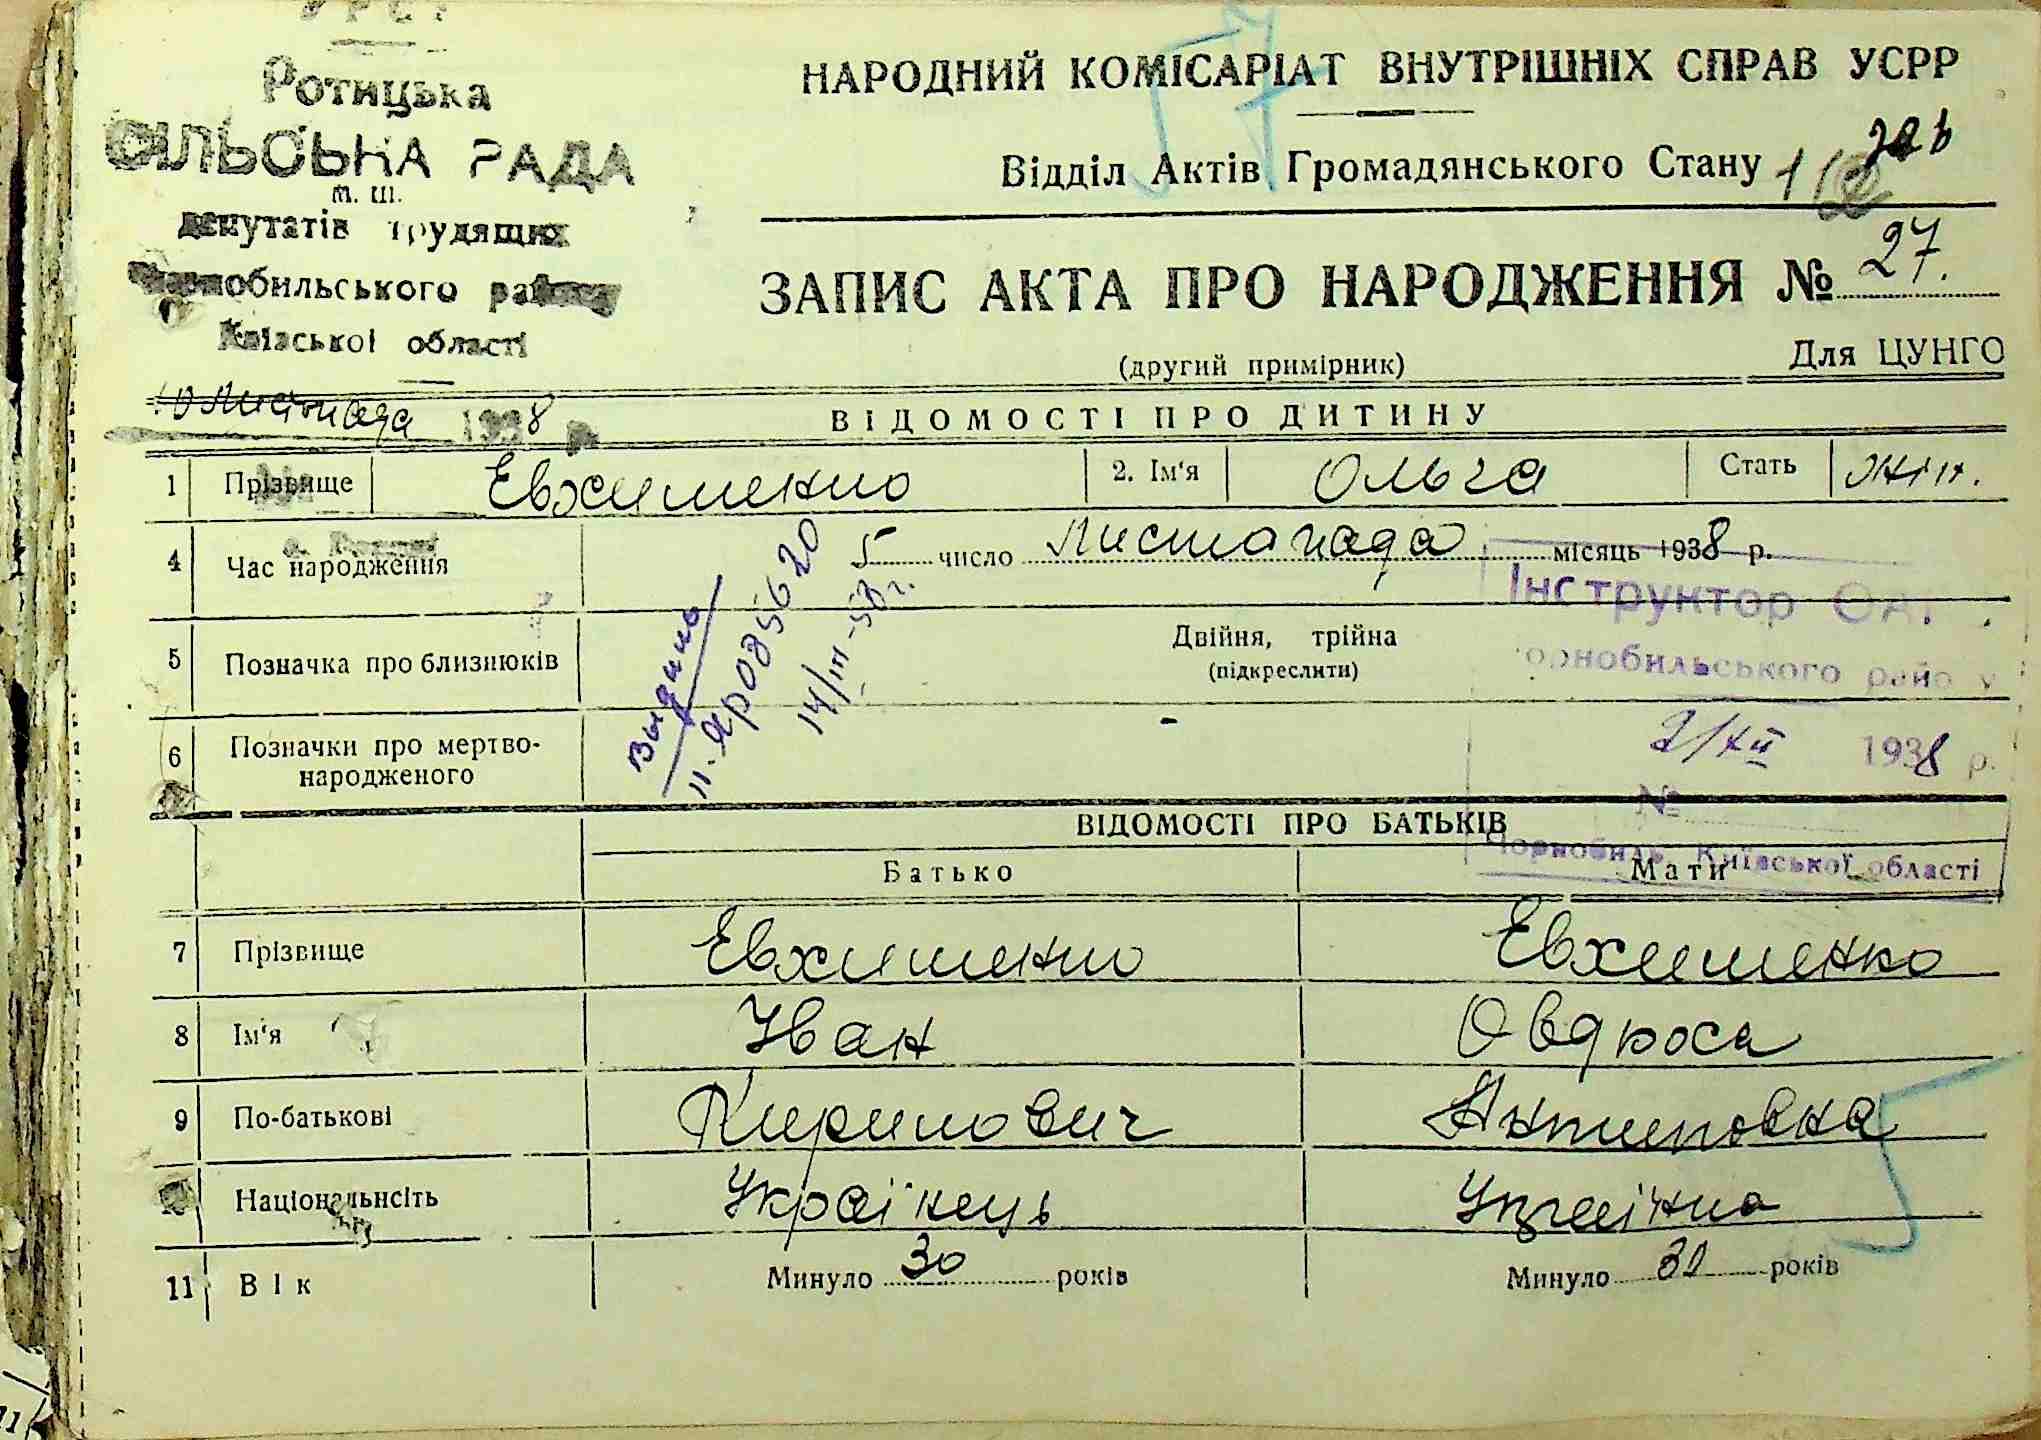 УРСР
Ротицька
СІЛЬСЬКА РАДА
т. ш.
депутатів трудящих
Чорнобильського району
Київської області
10 Листопада 1938 р.
НАРОДНИЙ КОМІСАРІАТ ВНУТРІШНІХ СПРАВ УСРР
Відділ Актів Громадянського Стану
ЗАПИС АКТА ПРО НАРОДЖЕННЯ № 27.
(другий примірник)
Для ЦУНГО
ВІДОМОСТІ ПРО ДИТИНУ
1 Прізвище Евхименко 2. Ім'я Ольга Стать жін.
4 Час народження 5 число Листопада місяць 1938 р.
Інструктор
Чорнобильського району
5 Позначка про близнюків Двійня, трійна
(підкреслити)
Выдано
14/III-58 г.
6 Позначки про мертво-
народженого -
2/XII 1938 р.
№
Чорнобиль, Київської області
ВІДОМОСТІ ПРО БАТЬКІВ
Батько Мати
7 Прізвище Евхименко Евхименко
8 Ім'я Іван Овдюса
9 По-батькові Кирилович Антиповна
Національнсіть Українець Українка
11 Вік Минуло 30 років Минуло 30 років